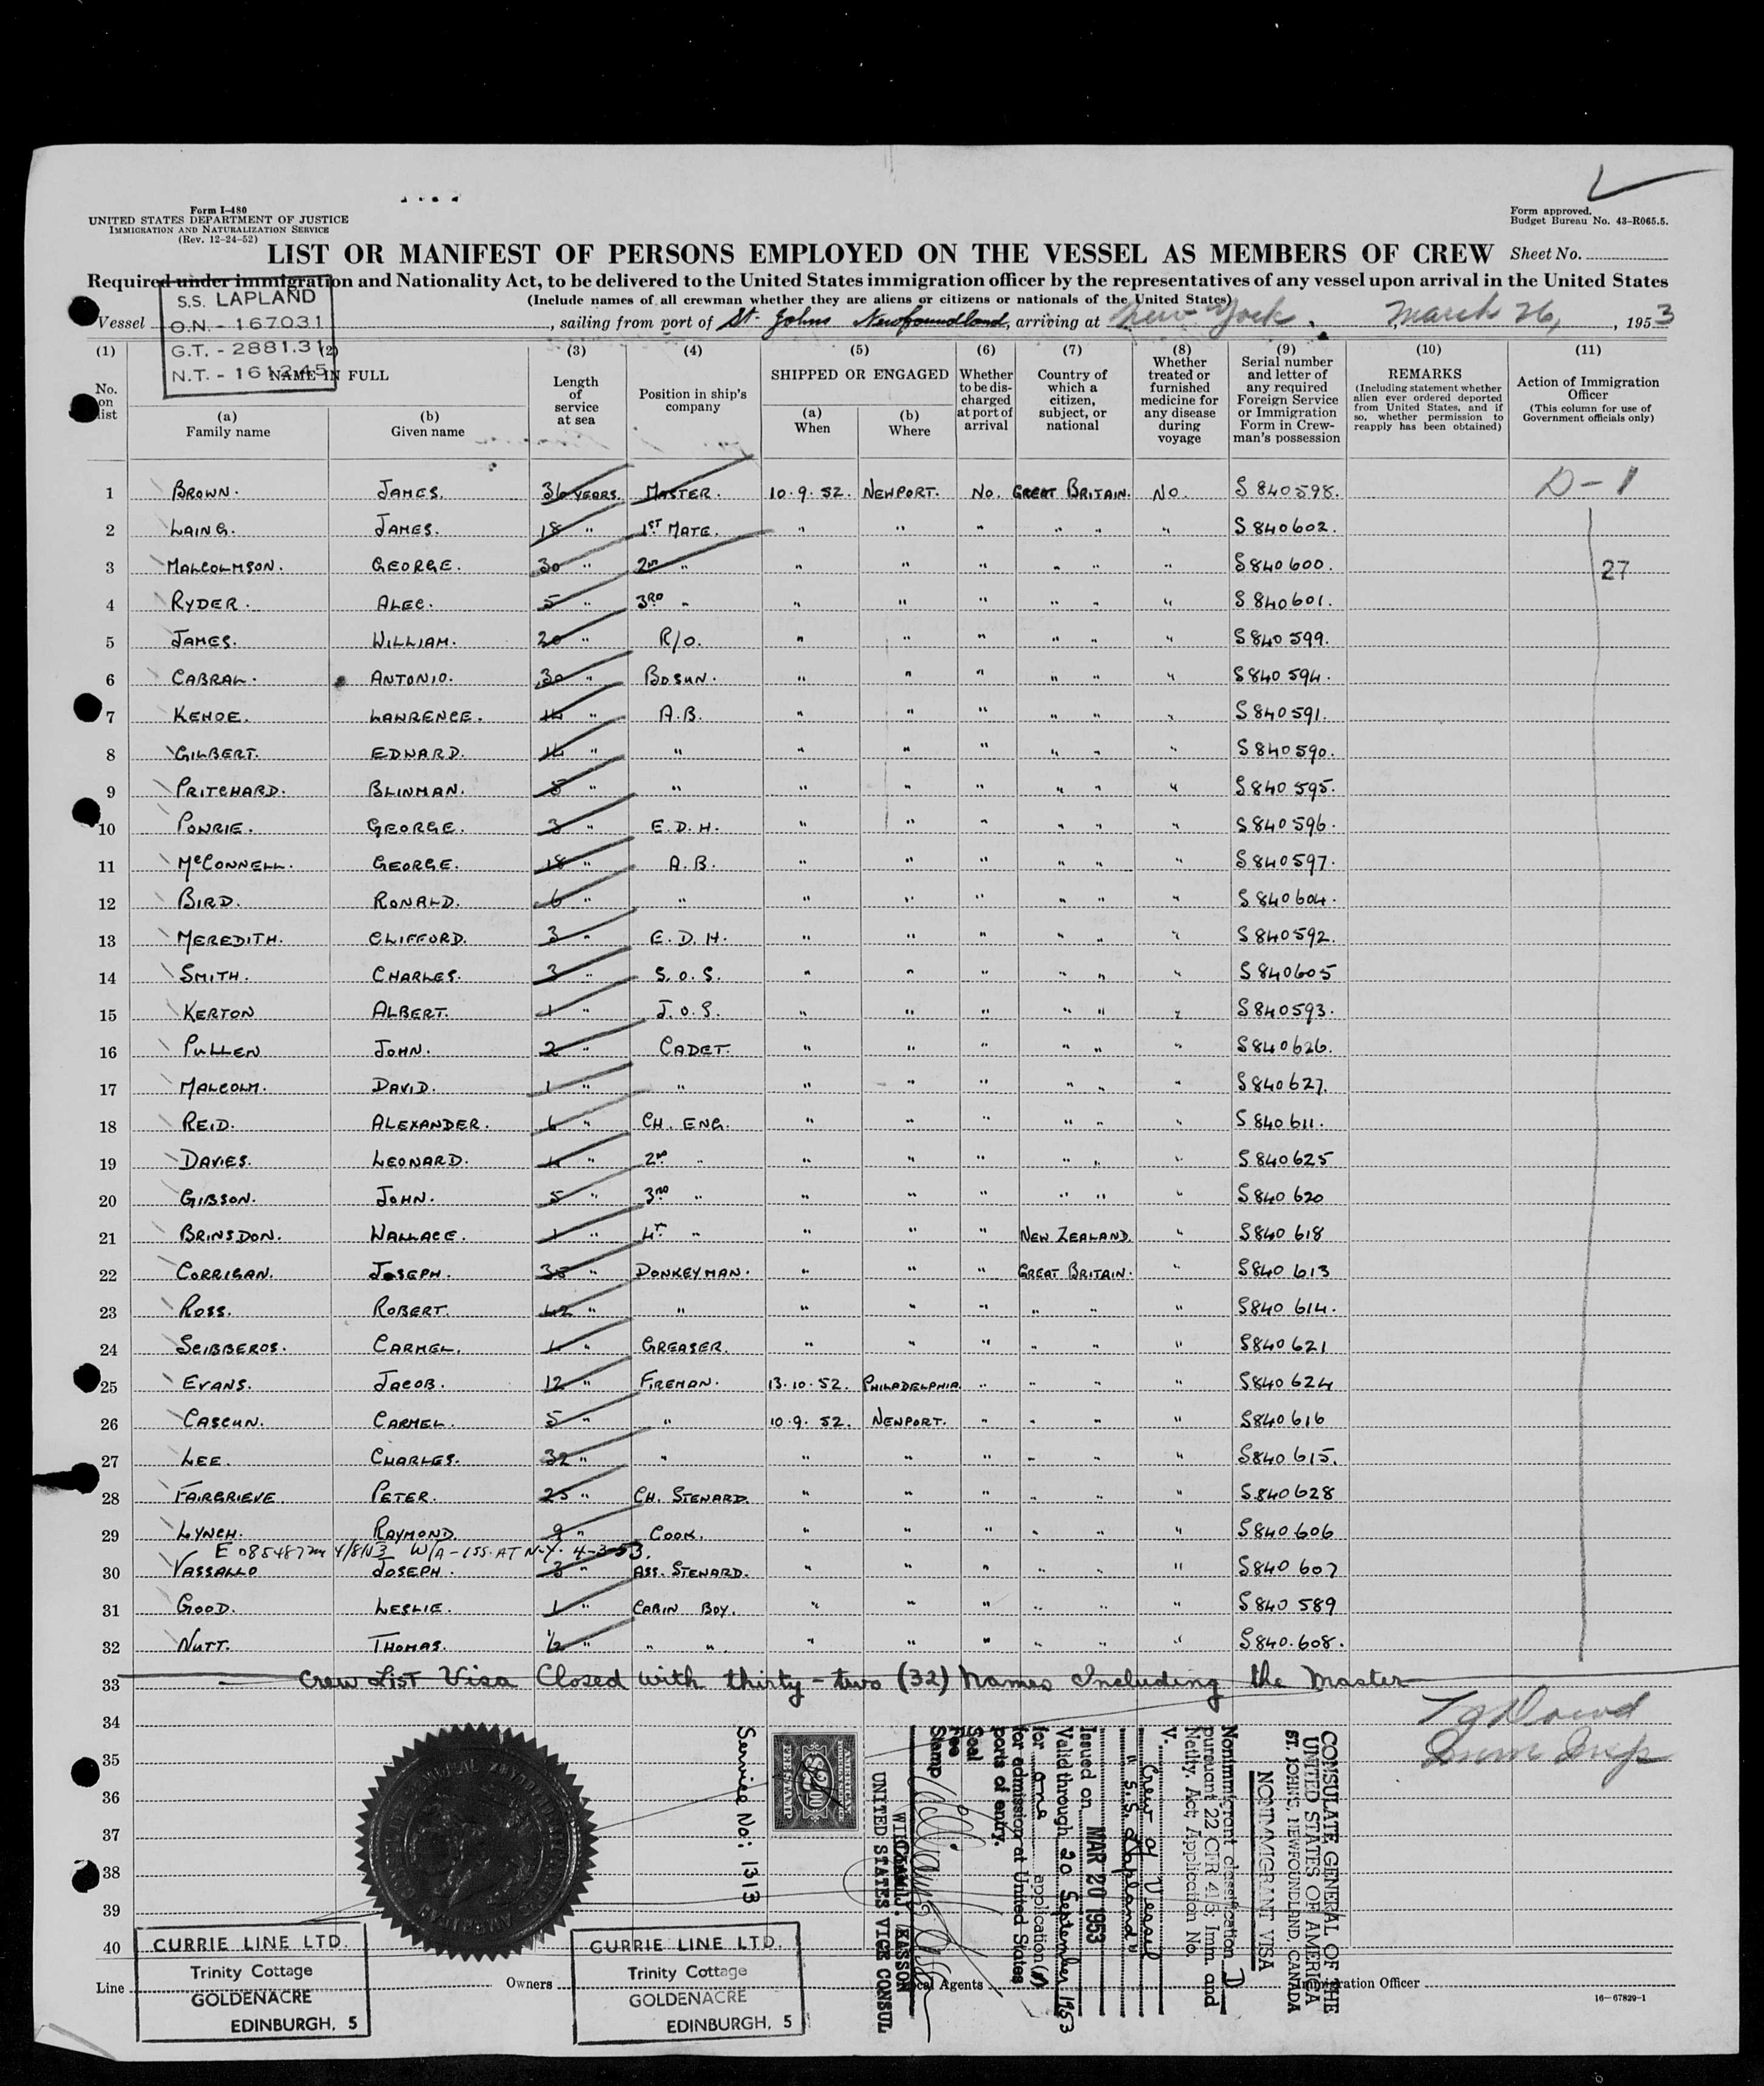 Form I-480
UNITED STATES DEPARTMENT OF JUSTICE
IMMIGRATION AND NATURALIZATION SERVICE
(Rev. 12-24-52)
Form approved.
Budget Bureau No. 43-R065.5.
LIST OR MANIFEST OF PERSONS EMPLOYED ON THE VESSEL AS MEMBERS OF CREW Sheet No.
Required under immigration and Nationality Act, to be delivered to the United States immigration officer by the representatives of any vessel upon arrival in the United States
(Include names of all crewman whether they are aliens or citizens or nationals of the United States)
S.S. LAPLAND
O.N. - 167031
G.T. - 2881.31
N.T. - 1612.45
Vessel , sailing from port of St. Johns Newfoundland, arriving at New York, March 26, 1953
(1) No. on list
(2) NAME IN FULL
(a) Family name
(b) Given name
(3) Length of service at sea
(4) Position in ship's company
(5) SHIPPED OR ENGAGED
(a) When
(b) Where
(6) Whether to be discharged at port of arrival
(7) Country of which a citizen, subject, or national
(8) Whether treated or furnished medicine for any disease during voyage
(9) Serial number and letter of any required Foreign Service or Immigration Form in Crewman's possession
(10) REMARKS (Including statement whether alien ever ordered deported from United States, and if so, whether permission to reapply has been obtained)
(11) Action of Immigration Officer (This column for use of Government officials only)
1 BROWN. JAMES. 36 YEARS. MASTER. 10.9.52. NEWPORT. No. GREAT BRITAIN. No. S 840598. D-1
2 LAING. JAMES. 18 " 1ST MATE. " " " " " " S 840602.
3 MALCOLMSON. GEORGE. 30 " 2ND " " " " " " " S 840600. 27
4 RYDER. ALEC. 5 " 3RD " " " " " " " S 840601.
5 JAMES. WILLIAM. 20 " R/O. " " " " " " S 840599.
6 CABRAL. ANTONIO. 30 " BOSUN. " " " " " " S 840594.
7 KEHOE. LAWRENCE. 14 " A.B. " " " " " " S 840591.
8 GILBERT. EDWARD. 14 " " " " " " " " S 840590.
9 PRITCHARD. BLINMAN. 8 " " " " " " " " S 840595.
10 POWRIE. GEORGE. 3 " E.D.H. " " " " " " S 840596.
11 McCONNELL. GEORGE. 18 " A.B. " " " " " " S 840597.
12 BIRD. RONALD. 6 " " " " " " " " S 840604.
13 MEREDITH. CLIFFORD. 3 " E.D.H. " " " " " " S 840592.
14 SMITH. CHARLES. 3 " S.O.S. " " " " " " S 840605
15 KERTON ALBERT. 1 " J.O.S. " " " " " " S 840593.
16 PULLEN JOHN. 2 " CADET. " " " " " " S 840626.
17 MALCOLM. DAVID. 1 " " " " " " " " S 840627.
18 REID. ALEXANDER. 6 " CH. ENG. " " " " " " S 840611.
19 DAVIES. LEONARD. 4 " 2ND " " " " " " " S 840625
20 GIBSON. JOHN. 5 " 3RD " " " " " " " S 840620
21 BRINSDON. WALLACE. 1 " 4T " " " " NEW ZEALAND. " S 840618
22 CORRIGAN. JOSEPH. 35 " DONKEYMAN. " " " GREAT BRITAIN. " S 840613
23 ROSS. ROBERT. 42 " " " " " " " " S 840614.
24 SCIBBEROS. CARMEL. 4 " GREASER. " " " " " " S 840621
25 EVANS. JACOB. 12 " FIREMAN. 13.10.52. PHILADELPHIA. " " " " S 840624
26 CASCUN. CARMEL. 5 " " 10.9.52. NEWPORT. " " " " S 840616
27 LEE. CHARLES. 32 " " " " " " " " S 840615.
28 FAIRGRIEVE. PETER. 25 " CH. STEWARD. " " " " " " S 840628
29 LYNCH. RAYMOND. 9 " COOK. " " " " " " S 840606
W/A - ISS. AT N.Y. 4-3-53.
30 VASSALLO JOSEPH. 3 " ASS. STEWARD. " " " " " " S 840607
31 GOOD. LESLIE. 1 " CABIN BOY. " " " " " " S 840589
32 NUTT. THOMAS. ½ " " " " " " " " " S 840608.
33 Crew List Visa Closed with thirty-two (32) Names Including the Master
34
35
36
37
38
39
40
Imm Insp
CONSULATE GENERAL OF THE
UNITED STATES OF AMERICA
ST. JOHN'S, NEWFOUNDLAND, CANADA
NONIMMIGRANT VISA
Nonimmigrant classification D
pursuant 22 CFR 41.5; Imm. and
Natlty. Act; Application No.
V. Crew of Vessel
"S.S. Lapland"
Issued on MAR 20 1953
Valid through 20 September 1953
for one application(s)
for admission at United States
ports of entry.
Seal
Fee
Stamp
WILLIAM J. KASSON
UNITED STATES VICE CONSUL
AMERICAN
$2.00
FEE STAMP
Service No: 1313
CURRIE LINE LTD.
Trinity Cottage
GOLDENACRE
EDINBURGH, 5
CURRIE LINE LTD.
Trinity Cottage
GOLDENACRE
EDINBURGH, 5
Line Owners Local Agents Immigration Officer
16-67829-1